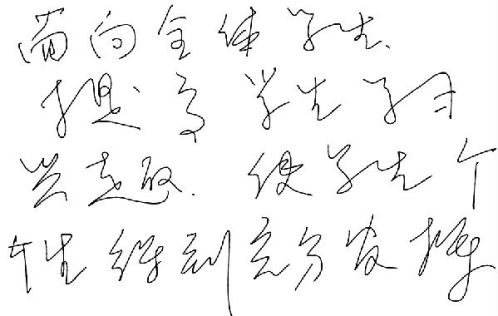 面向全体学生.
提高学生学习
兴趣. 使学生个
性得到充分发挥